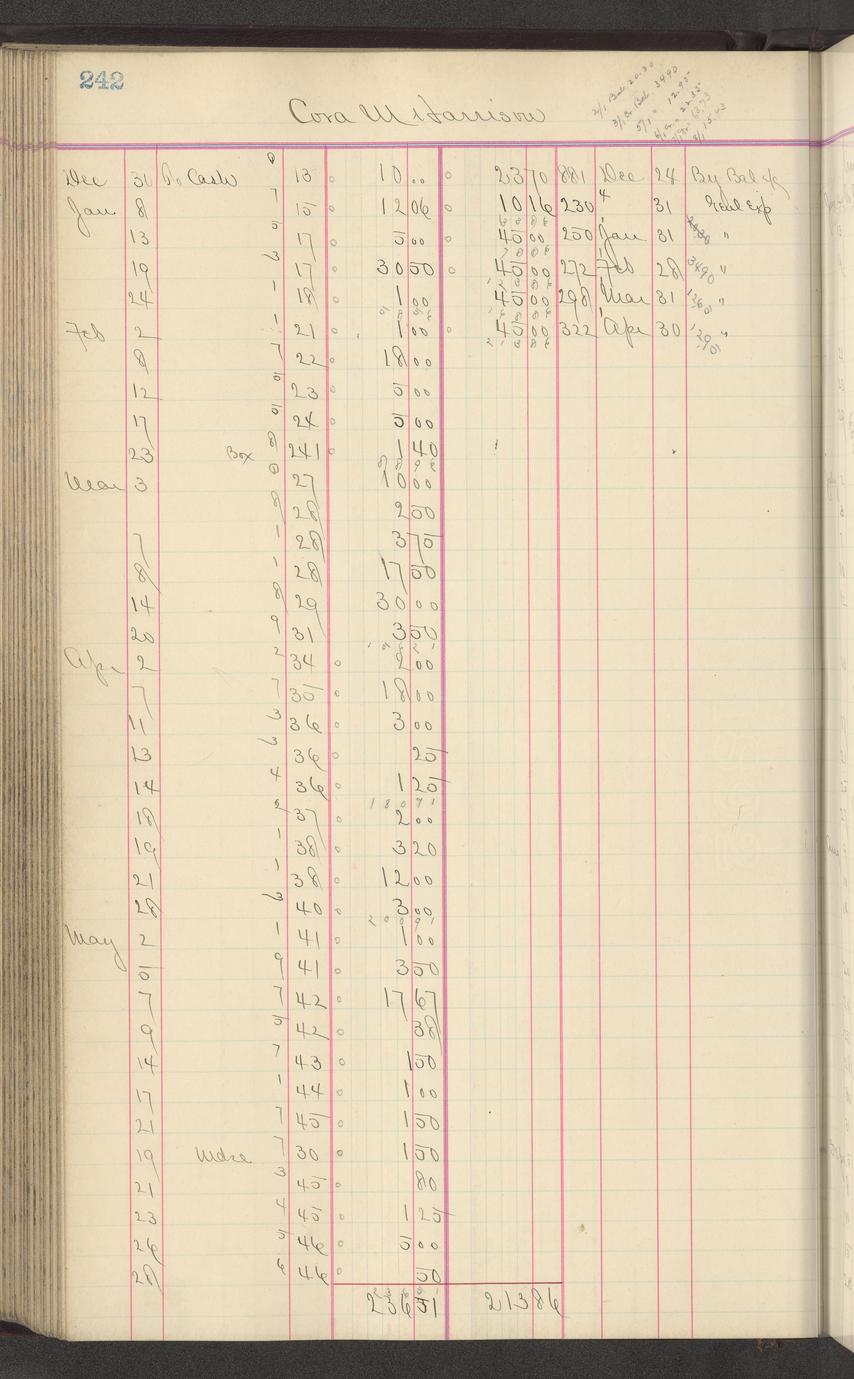 242
Cora M Harrison
2/1 Bal 20.30
3/1 Cr Bal 34.90
5/1 " 12.95
Dec 31 To Cash 0 13 10 00 2370 881 Dec 24 By Bal
Jan 8 7 15 12 06 10 16 230 31 Genl Exp
13 5 17 5 00 45 00 250 Jan 31 "
19 3 17 30 50 45 00 272 Feb 28 3490 "
24 1 18 1 00 45 00 298 Mar 31 "
Feb 2 1 21 1 00 45 00 322 Apr 30 "
8 7 22 18 00
12 5 23 5 00
17 5 24 5 00
23 Box 8 241 1 40
Mar 3 0 27 10 00
8 28 2 00
7 1 28 3 75
8 1 28 17 50
14 8 29 30 00
20 9 31 3 50
Apr 2 2 34 2 00
7 7 35 18 00
11 3 36 3 00
13 3 36 25
14 4 36 1 25
18 2 37 2 00
18071
19 1 38 3 20
21 1 38 12 00
28 3 40 3 00
May 2 1 41 1 00
5 9 41 3 50
7 7 42 17 67
9 5 42 38
14 7 43 1 50
17 1 44 1 00
21 7 45 1 50
19 Mdse 7 30 1 50
21 3 45 80
23 4 45 1 25
26 5 46 5 00
28 6 46 50
236 51 213 86